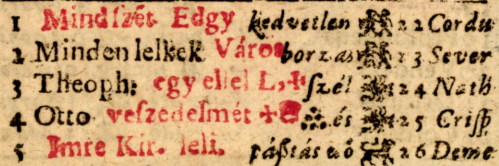 1 Mindſzét Edgy kedvetlen 22 Cordu
2 Minden lelkek Város borzas 23 Sever
3 Theoph: egy ellel L, ſzél 24 Nath
4 Otto veſzedelmét és 25 Criſp
5 Imre Kir. leli. 26 Deme